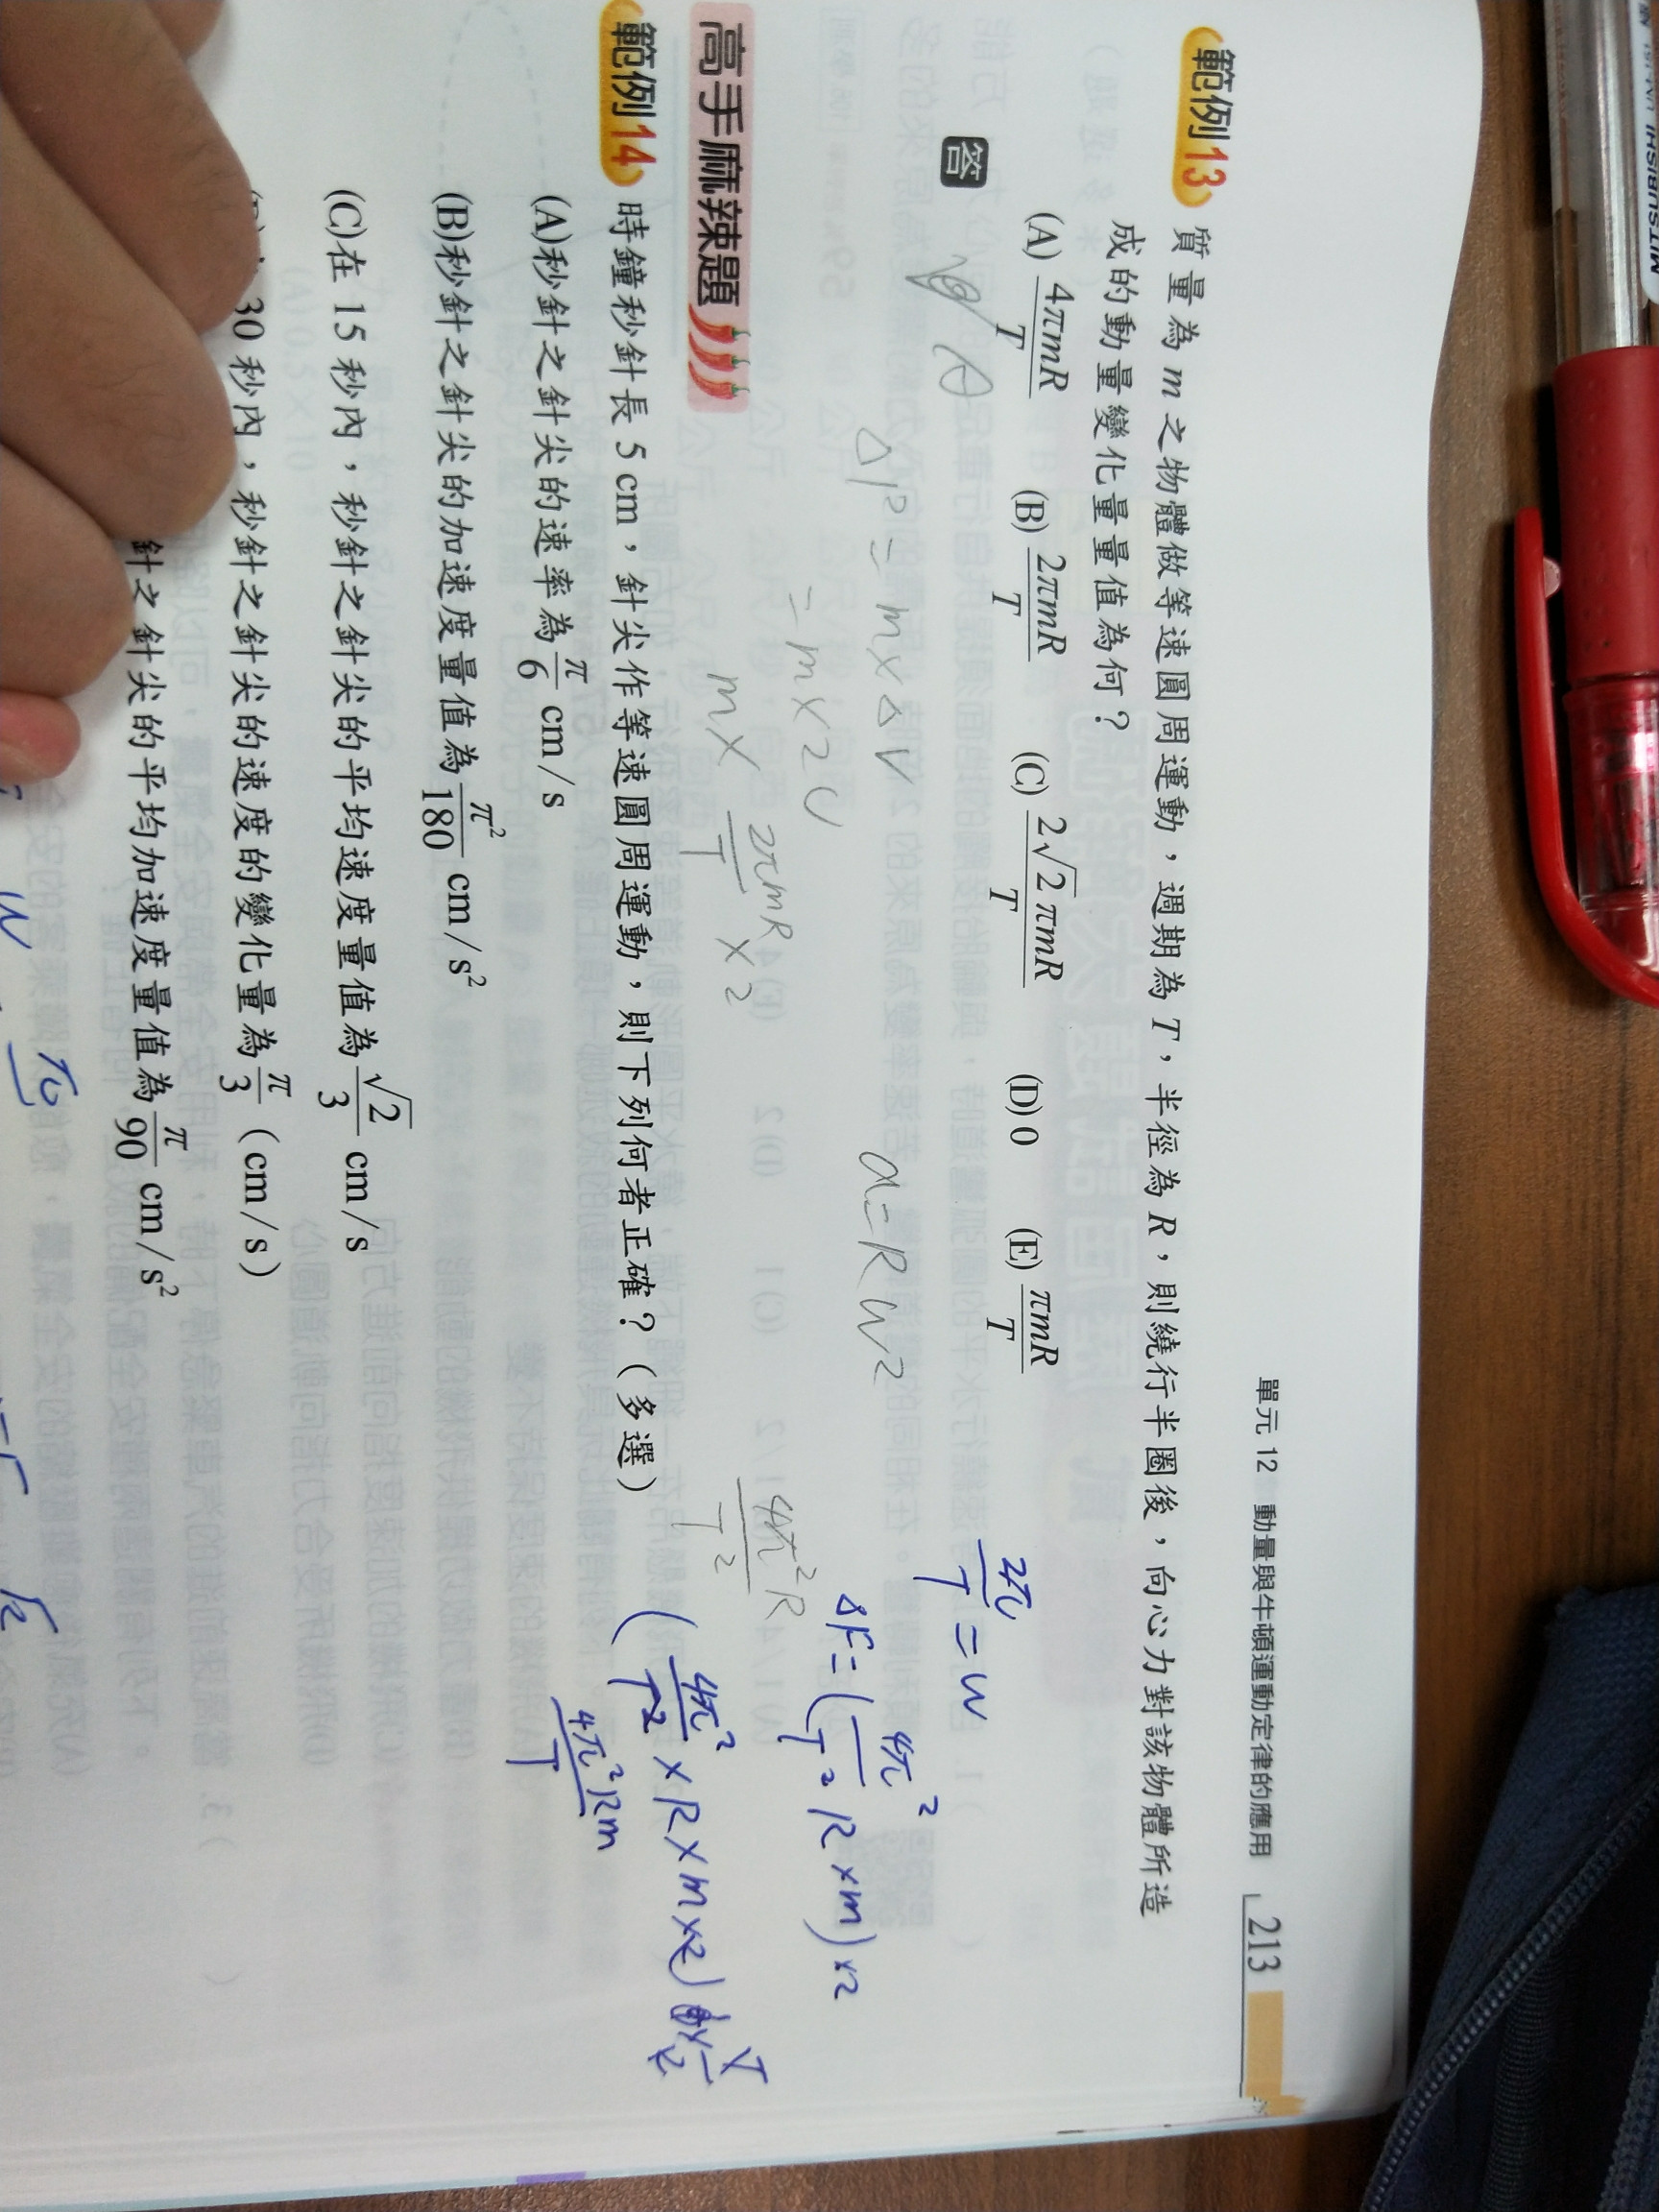 單元 12 動量與牛頓運動定律的應用 213
範例13 質量為 m 之物體做等速圓周運動，週期為 T，半徑為 R，則繞行半圈後，向心力對該物體所造
成的動量變化量量值為何？
(A) 4πmR/T (B) 2πmR/T (C) 2√2πmR/T (D) 0 (E) πmR/T
答 A
2π/T = W
ΔP = m×ΔV
a = RW²
ΔF = (4π²/T² R×m)×2
= m×2V
m× 2πmR/T ×2
4π²R/T²
(4π²/T² × R×m×2)
4π²Rm/T
高手麻辣題
範例14 時鐘秒針長 5 cm，針尖作等速圓周運動，則下列何者正確？（多選）
(A)秒針之針尖的速率為 π/6 cm/s
(B)秒針之針尖的加速度量值為 π²/180 cm/s²
(C)在 15 秒內，秒針之針尖的平均速度量值為 √2/3 cm/s
30 秒內，秒針之針尖的速度的變化量為 π/3 (cm/s)
針之針尖的平均加速度量值為 π/90 cm/s²
W
MITSUBISHI